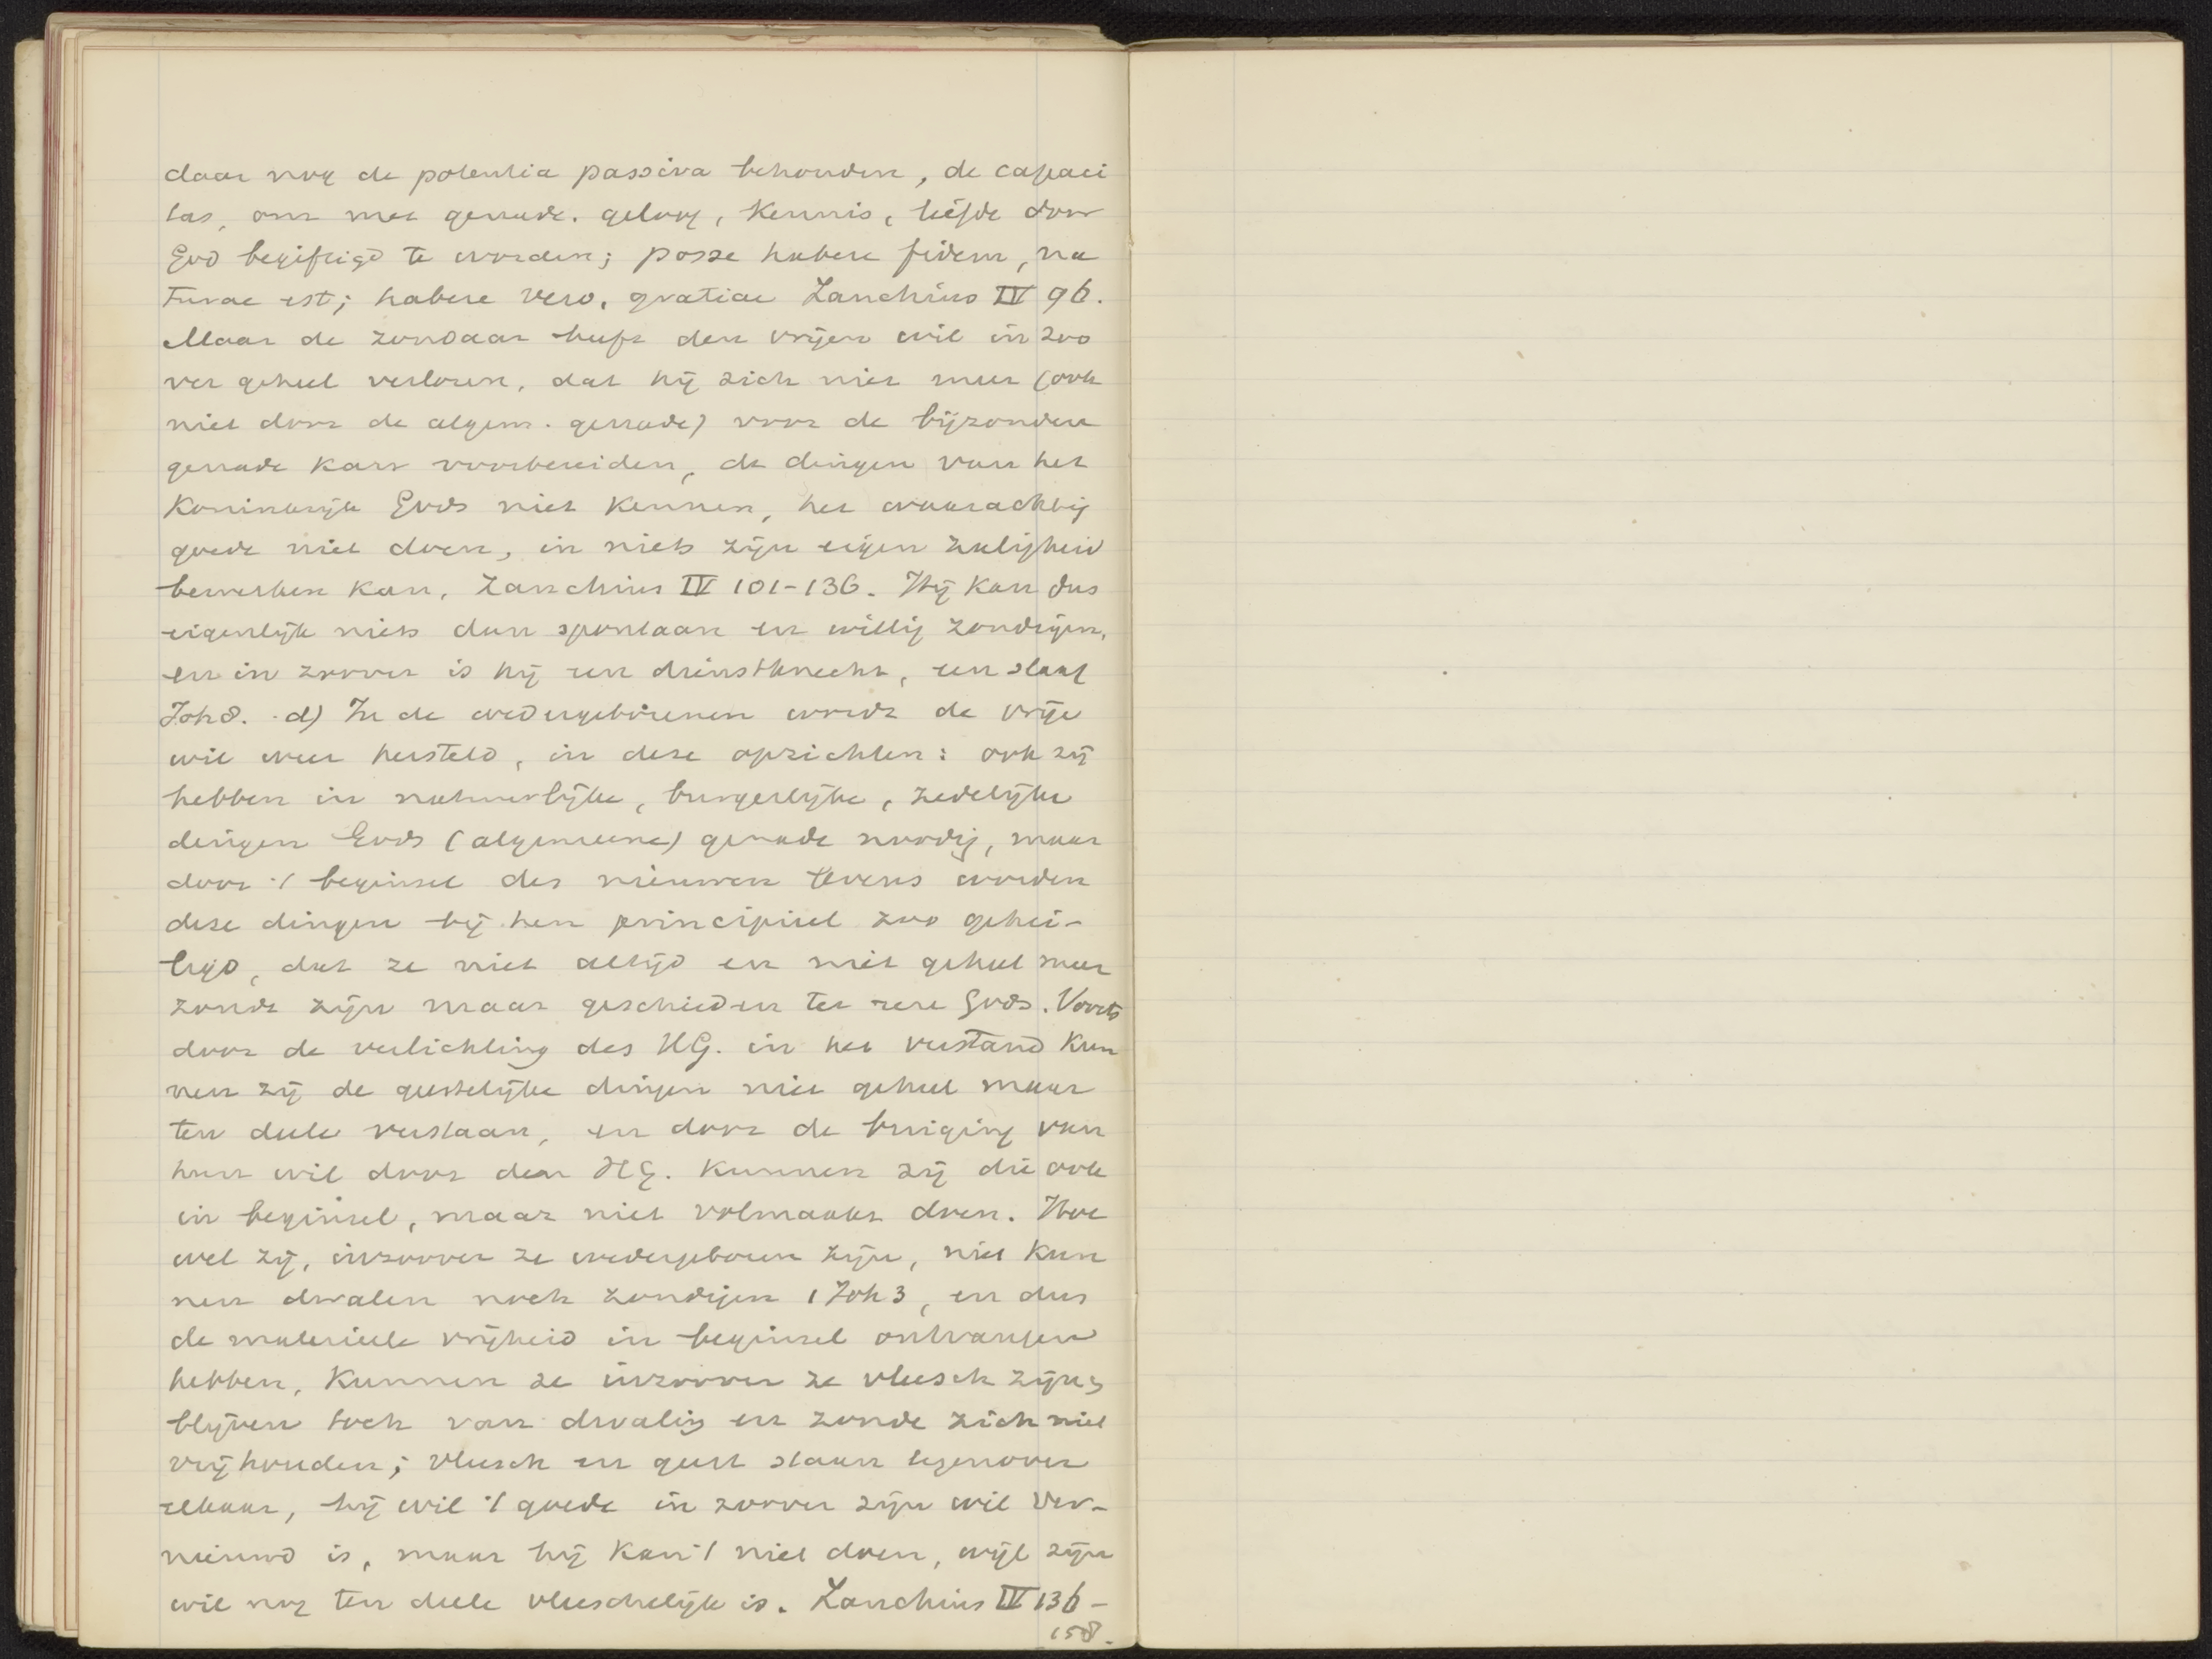 daar nog de potentia passiva behouden, de capaci
tas, om met genade, geloof, kennis, liefde door
God begiftigd te worden; posse habere fidem, na
turae est; habere vero, gratiae Zanchius IV 96.
Maar de zondaar heeft den vrijen wil in zoo
ver geheel verloren, dat hij zich niet meer (ook
niet door de algem. genade) voor de bijzondere
genade kan voorbereiden, de dingen van het
Koninkrijk Gods niet kennen, het waarachtig
goede niet doen, in niets zijn eigen zaligheid
bewerken kan, Zanchius IV 101-136. Hij kan dus
eigenlijk niets dan spontaan en willig zondigen,
en in zoover is hij een dienstknecht, een slaaf
Joh 8. d) In de wedergeborenen wordt de vrije
wil weer hersteld, in deze opzichten: ook zij
hebben in natuurlijke, burgerlijke, zedelijke
dingen Gods (algemeene) genade noodig, maar
door 't beginsel des nieuwen levens worden
deze dingen bij hen principieel zoo gehei-
ligd, dat ze niet altijd en niet geheel meer
zonde zijn maar geschieden ter eere Gods. Voorts
door de verlichting des HG. in het verstand kun
nen zij de geestelijke dingen niet geheel maar
ten deele verstaan, en door de buiging van
hun wil door den HG. kunnen zij die ook
in beginsel, maar niet volmaakt doen. Hoe
wel zij, inzoover ze wedergeboren zijn, niet kun
nen dwalen noch zondigen 1 Joh 3, en dus
de materieele vrijheid in beginsel ontvangen
hebben, kunnen ze inzoover ze vleesch zijn
blijven toch van dwaling en zonde zich niet
vrijhouden; vleesch en geest staan tegenover
elkaar, hij wil 't goede in zoover zijn wil ver-
nieuwd is, maar hij kan 't niet doen, wijl zijn
wil nog ten deele vleeschelijk is. Zanchius IV 136-
158.